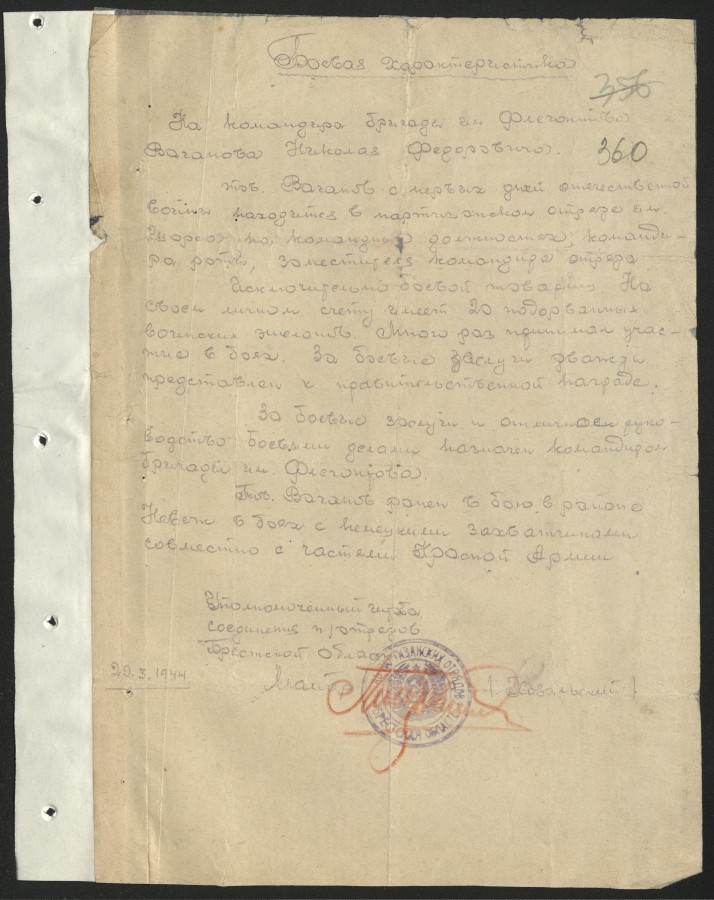 Боевая характеристика
356
На командира бригады им Флегонтова
Ваганова Николая Федоровича. 360
тов. Ваганов с первых дней отечественной
войны находится в партизанском отряде им.
на командных должностях; команди-
ра роты, заместителя командира отряда
Исключительно боевой товарищ. На
своем личном счету имеет 20 подорванных
воинских эшелонов. Много раз принимал учас-
тие в боях. За боевые заслуги дважды
представлен к правительственной награде.
За боевые заслуги и отличное руко-
водство боевыми делами назначен командиром
бригады им. Флегонтова.
Тов. Ваганов ранен в бою в районе
в боях с немецкими захватчиками
совместно с частями Красной Армии
Уполномоченный штаба
соединения п/отрядов
Брестской области
20.3.1944
Майор / Ковальский /